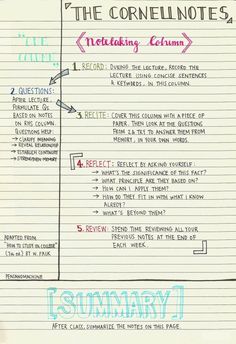 THE CORNELL NOTES
"CUE COLUMN"
Notetaking Column
1. RECORD: DURING THE LECTURE, RECORD THE
LECTURE USING CONCISE SENTENCES
& KEYWORDS, IN THIS COLUMN
2. QUESTIONS:
AFTER LECTURE,
FORMULATE Qs
BASED ON NOTES
ON RHS COLUMN.
QUESTIONS HELP:
→ CLARIFY MEANING
→ REVEAL RELATIONSHIP
→ ESTABLISH CONTINUITY
→ STRENGTHEN MEMORY
3. RECITE: COVER THIS COLUMN WITH A PIECE OF
PAPER. THEN LOOK AT THE QUESTIONS
FROM 2 & TRY TO ANSWER THEM FROM
MEMORY, IN YOUR OWN WORDS.
4. REFLECT: REFLECT BY ASKING YOURSELF:
→ WHAT'S THE SIGNIFICANCE OF THIS FACT?
→ WHAT PRINCIPLE ARE THEY BASED ON?
→ HOW CAN I APPLY THEM?
→ HOW DO THEY FIT IN WITH WHAT I KNOW
ALREADY?
→ WHAT'S BEYOND THEM?
5. REVIEW: SPEND TIME REVIEWING ALL YOUR
PREVIOUS NOTES AT THE END OF
EACH WEEK.
ADAPTED FROM
"HOW TO STUDY IN COLLEGE"
BY W. PAUK
[SUMMARY]
AFTER CLASS, SUMMARIZE THE NOTES ON THIS PAGE.